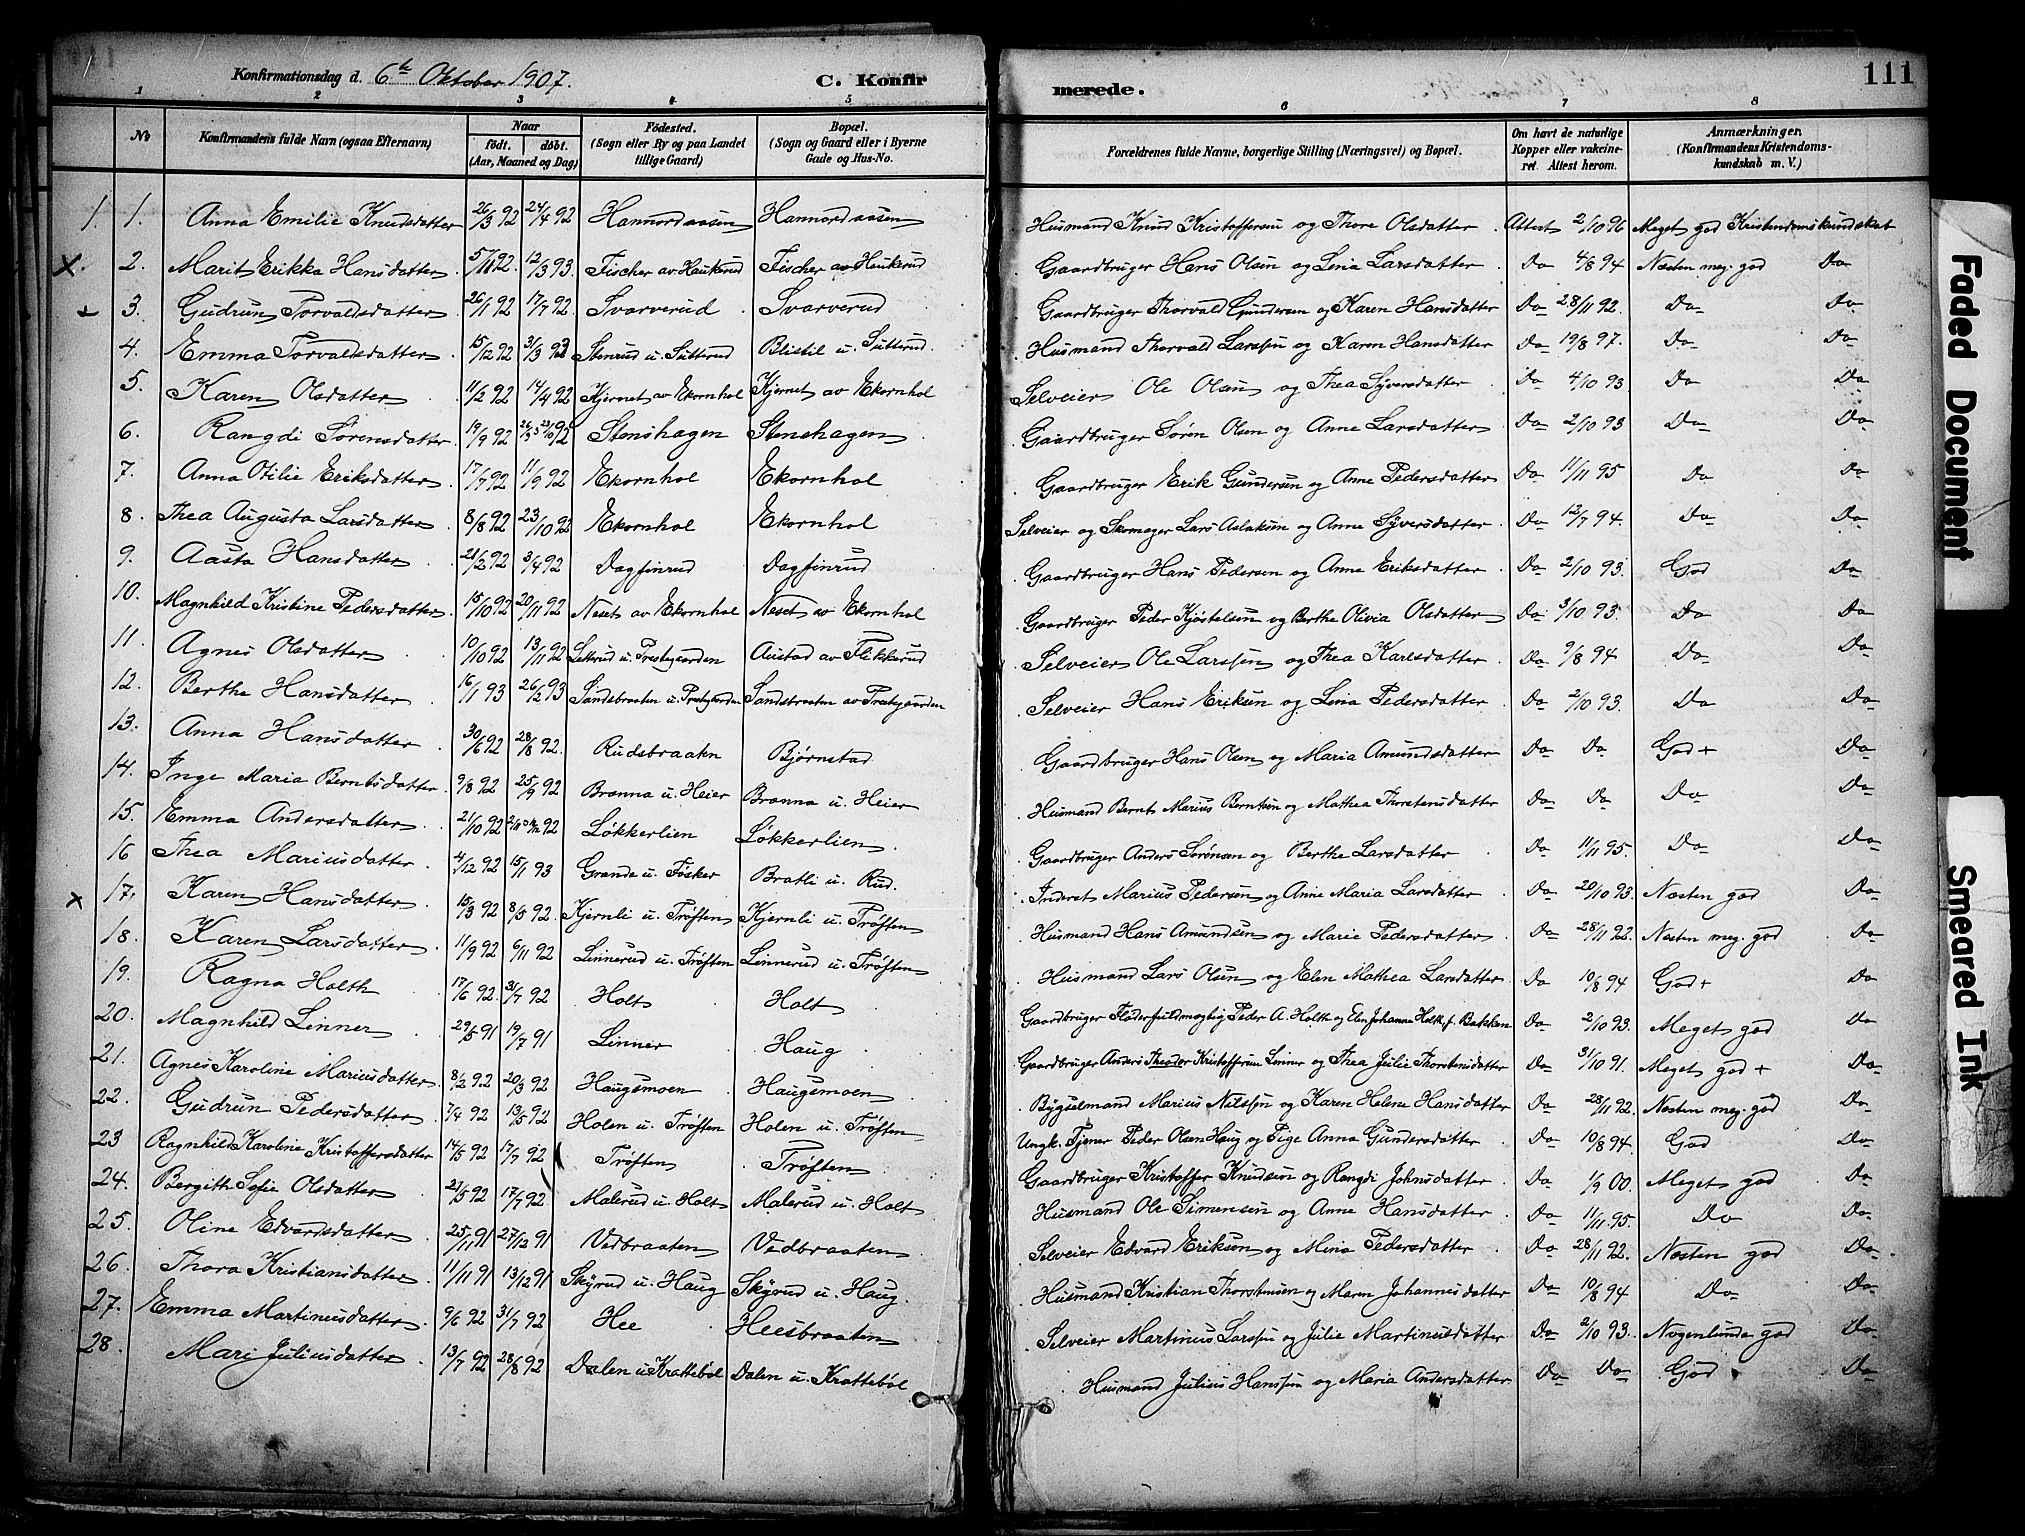 Konfirmationsdag d. 6te Oktober 1907. C. Konfir merede. 111
1 2 3 4 5 6 7 8
No Konfirmandens fulde Navn (ogsaa Efternavn) Naar födt. döbt. (Aar, Maaned og Dag) Födested. (Sogn eller By og paa Landet tillige Gaard) Bopæl. (Sogn og Gaard eller i Byerne Gade og Hus-No. Forældrenes fulde Navne, borgerlige Stilling (Næringsvei) og Bopæl. Om havt de naturlige Kopper eller vakcineret. Attest herom. Anmærkninger. (Konfirmandens Kristendomskundskab m. V.)
1. 1. Anna Emilie Knudsdatter 26/3 92 24/4 92 Hannordaasen Hannordaasen Husmand Knud Kristoffersen og Thore Olsdatter Attest 2/10 96 Meget god Kristendomskundskab
X. 2. Marit Erikka Hansdatter 12/3 93. Fischer av Haukerud Fischer av Haukerud Gaardbruger Hans Olsen og Lina Larsdatter Do 4/8 94 Næsten meg. god Do
3. Gudrun Torvaldsdatter 26/1 92 17/7 92 Svarverud Svarverud Gaardbruger Thorvald Gundersen og Karen Hansdatter Do 28/11 92. Do Do
4. Emma Torvaldsdatter 15/12 92 Stenrud u. Sutterud Blistil u. Sutterud. Husmand Thorvald Larssen og Karen Hansdatter Do 19/8 97. Do Do
5. Karen Olsdatter 11/2 92 14/4 92 Kjernet av Ekornhol Kjernet av Ekornhol Selveier Ole Olsen og Thea Syversdatter Do 4/10 93 Do Do
6. Rangdi Sørensdatter 19/9 92 Stenshagen Stenshagen Gaardbruger Søren Olsen og Anne Larsdatter Do 2/10 93 Do Do
7. Anna Otilie Eriksdatter 17/7 92 11/9 92 Ekornhol Ekornhol Gaardbruger Erik Gundersen og Anne Pedersdatter Do 11/11 95 Do Do
8. Thea Augusta Larsdatter 8/8 92 23/10 92 Ekornhol Ekornhol Selveier og Skomager Lars Aslaksen og Anne Syversdatter Do 12/7 94. Do Do
9. Aasta Hansdatter 21/2 92 3/4 92 Dagfinrud Dagfinrud Gaardbruger Hans Pedersen og Anne Eriksdatter Do 2/10 93. God Do
10. Magnhild Kristine Pedersdatter 15/10 92 20/11 92 Neset av Ekornhol Neset av Ekornhol Gaardbruger Peder Kjøstelsen og Berthe Olivia Olsdatter Do 3/10 93. Do Do
11. Agnes Olsdatter 10/10 92 13/11 92 Setterud u. Prestegaarden Austad av Flikkerud Selveier Ole Larssen og Thea Karlsdatter Do 9/8 94 Do Do
12. Berthe Hansdatter 16/1 93 26/2 93 Sandsbraaten u. Prestegaarden Sandsbraaten av Prestegaarden Selveier Hans Eriksen og Lina Pedersdatter Do 2/10 93. Do Do
13. Anna Hansdatter 30/6 92 28/8 92. Rudsbraatn Bjørnstad Gaardbruger Hans Olsen og Maria Amundsdatter Do Do God + Do
14. Inga Maria Berntsdatter 9/8 92 25/9 92 Brænna u. Heier Brænna u. Heier Husmand Bernt Marius Berntsen og Mathea Thorstensdatter Do Do Do Do
15. Emma Andersdatter 21/10 92 Løkkerlien Løkkerlien Gaardbruger Anders Sørensen og Berthe Larsdatter Do 11/11 95. Do Do
16 Thea Mariusdatter 4/12 92 15/1 93 Grande u. Fösker Bratli u. Rud. Inderst Marius Pedersen og Anne Maria Larsdatter Do 20/10 93. Næsten god Do
x 17. Karen Hansdatter 15/3 92 8/5 92. Kjernli u. Trøften Kjernli u. Trøften Husmand Hans Amundsen og Marie Pedersdatter Do 28/11 92. Næsten meg. god Do
18. Karen Larsdatter 11/9 92 6/11 92 Linnerud u. Trøften Linnerud u. Trøften Husmand Lars Olsen og Elen Mathea Larsdatter Do 10/8 94 God + Do
19. Ragna Holth 17/6 92. 31/7 92 Holt Holt Gaardbruger Peder A. Holth og Elen Johanne Holth f. Bakken Do 2/10 93. Meget god Do
20. Magnhild Linner 29/5 91 19/7 91 Linner Haug Gaardbruger Anders Theodor Kristoffersen Linner og Thea Julie Thorstensdatter Do 31/10 91. Meget god + Do
21. Agnes Karoline Mariusdatter 8/2 92 20/3 92 Haugsmoen Haugsmoen Bygselmand Marius Nilssen og Karen Helene Hansdatter Do 28/11 92. Næsten meg. god Do
22. Gudrun Pedersdatter 7/4 92 13/5 92 Holen u. Trøften Holen u. Trøften Ungk. Tjener Peder Olsen Haug og Pige Anna Gundersdatter Do 10/8 94. God Do
23 Ragnhild Karoline Kristoffersdatter 14/5 92 17/7 92 Trøften Trøften Gaardbruger Kristoffer Knudsen og Rangdi Johnsdatter Do 1/9 00. Meget god Do
24. Bergith Sofie Olsdatter 21/5 92 17/7 92 Malerud u. Holt Malerud u. Holt Husmand Ole Simensen og Anne Hansdatter Do 11/11 95. Do Do
25. Oline Edvardsdatter 25/11 91 27/12 91 Vedbraaten Vedbraaten Selveier Edvard Eriksen og Mina Pedersdatter Do 28/11 92. Næsten god Do
26. Thora Kristiansdatter 11/11 91 13/12 91 Skyrud u. Haug Skyrud u. Haug. Husmand Kristian Thorstensen og Maren Johannesdatter Do 10/8 94 Do Do
27. Emma Martinusdatter 9/6 92 31/7 92 Hee Heesbraaten Selveier Martinus Larssen og Julie Martinusdatter Do 2/10 93. Nogenlunde god Do
28. Mari Juliusdatter 13/7 92 28/8 92 Dalen u. Krattebøl Dalen u. Krattebøl Husmand Julius Hanssen og Maria Andersdatter Do Do God Do
Faded Document
Smeared Ink